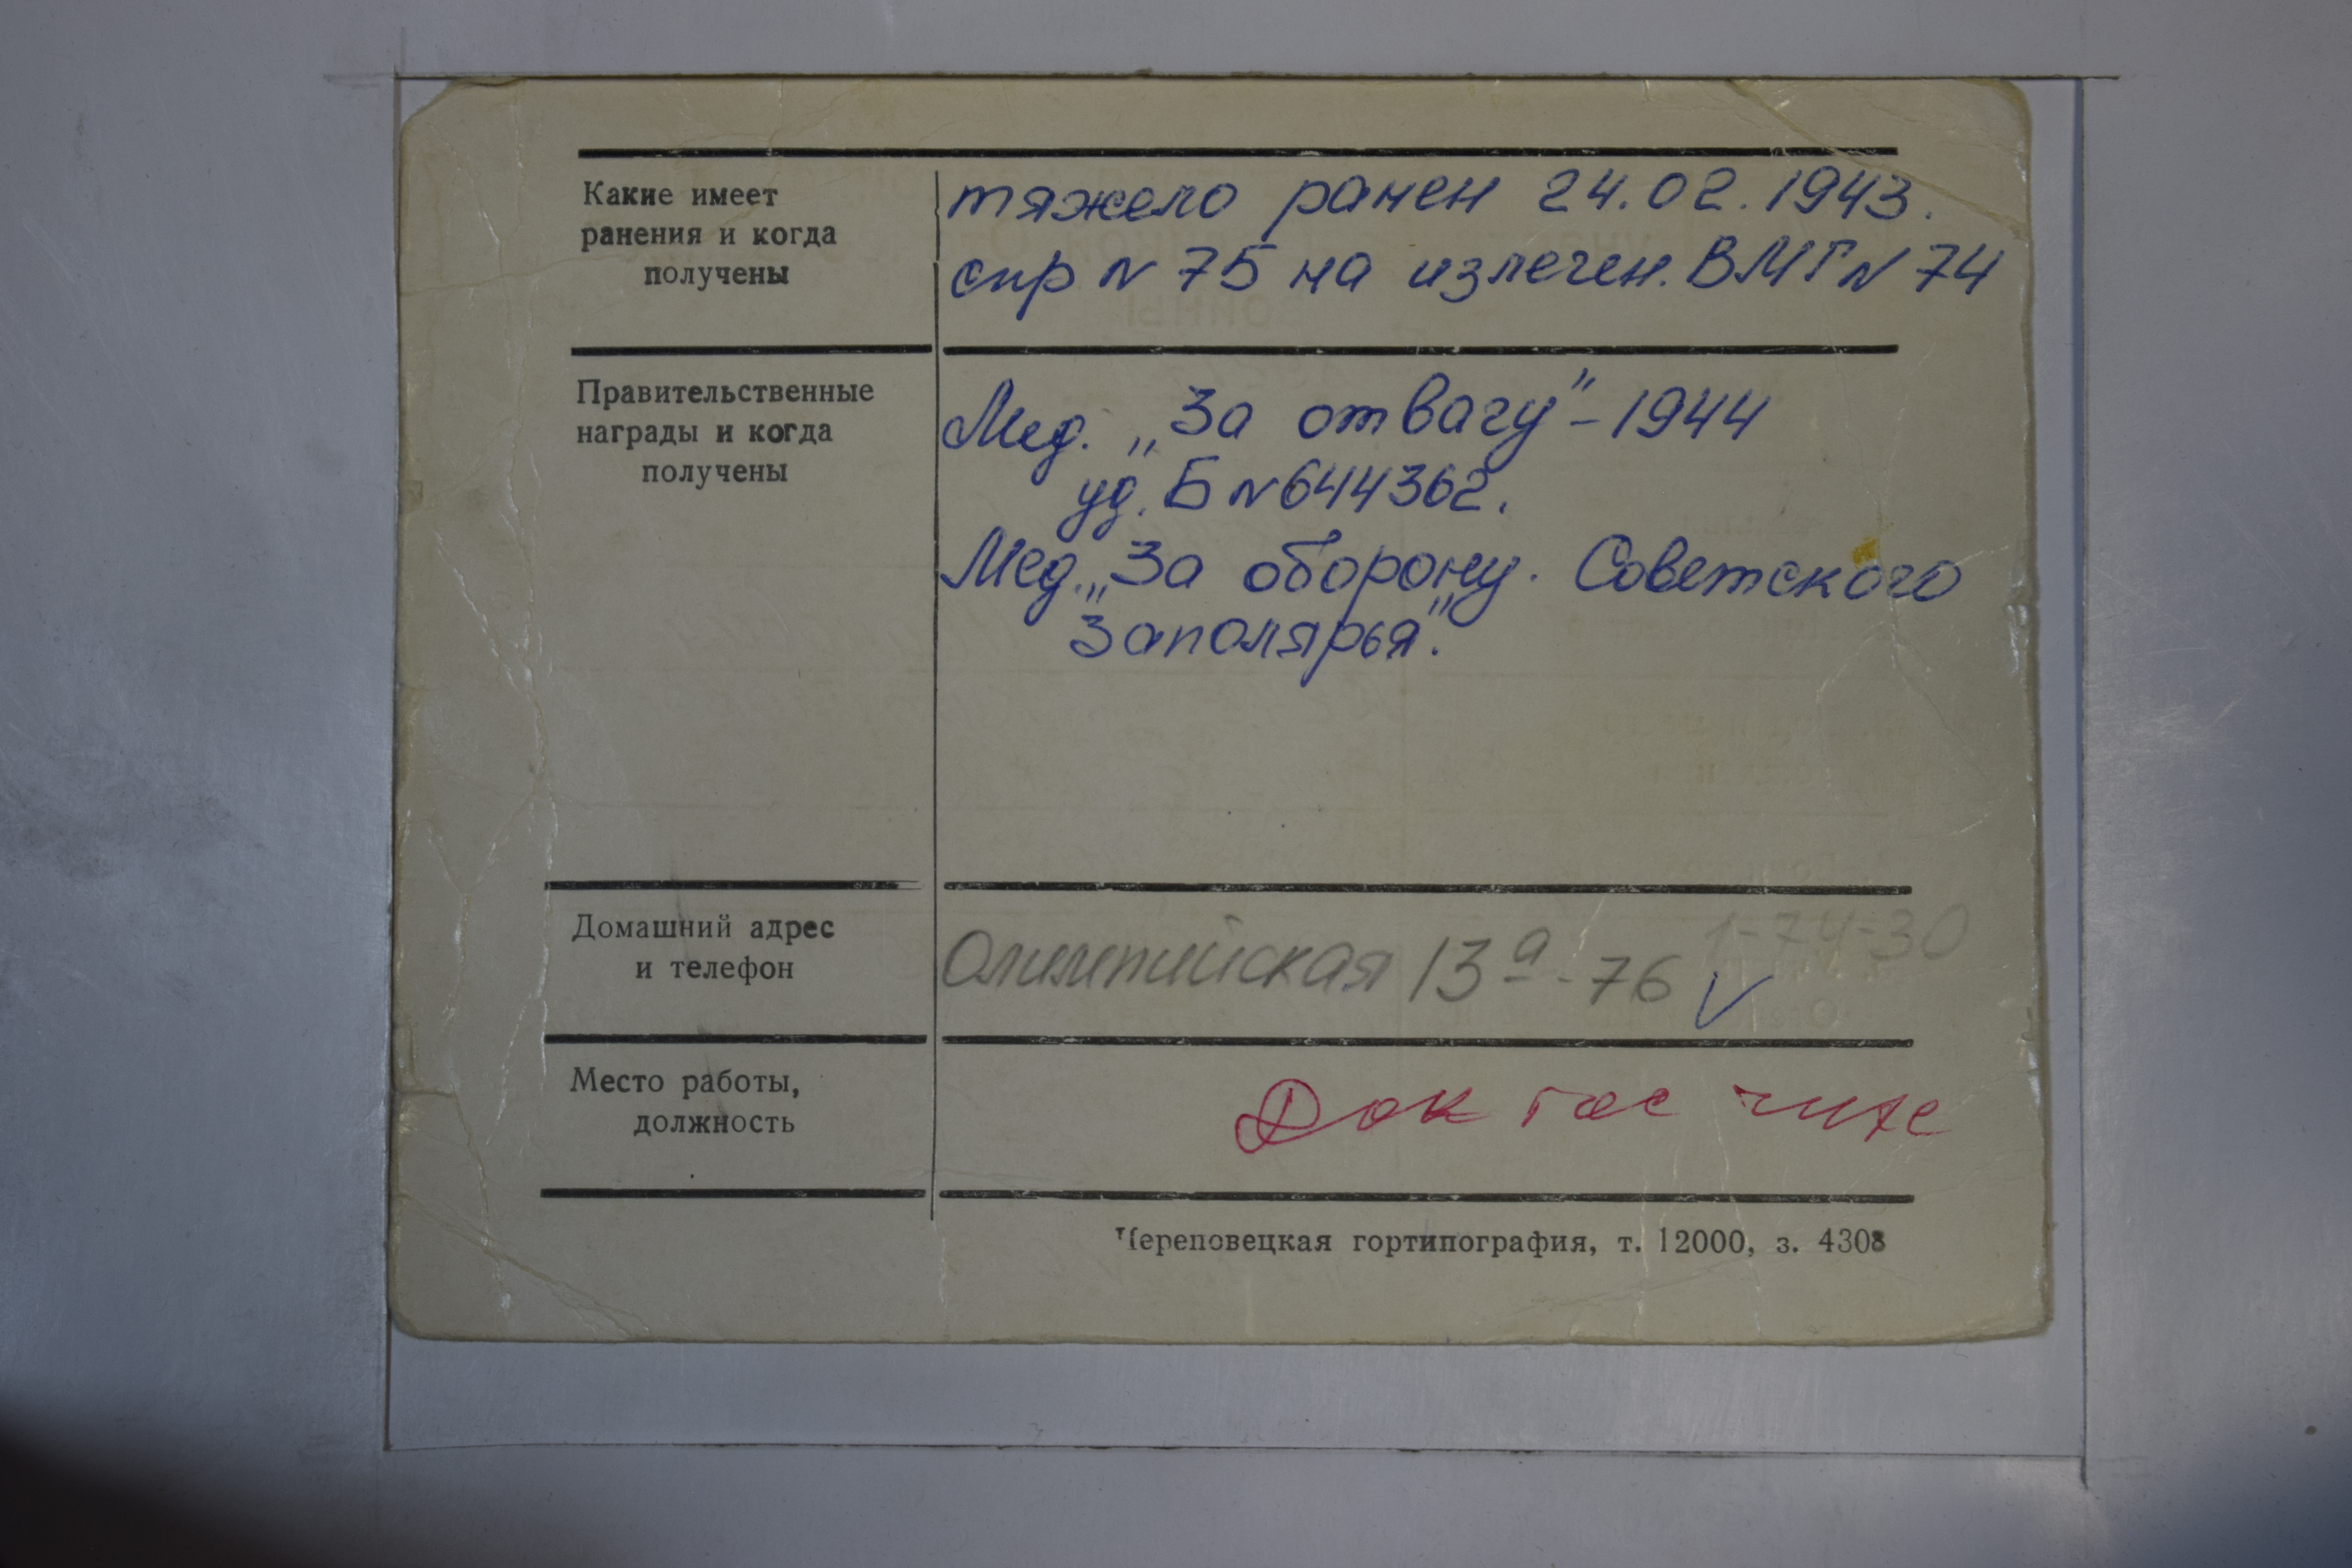 Какие имеет
ранения и когда
получены
тяжело ранен 24.02.1943.
спр N 75 на излечен. ВМГ N 74
Правительственные
награды и когда
получены
Мед. „За отвагу" - 1944
уд. Б N 644362.
Мед. „За оборону. Советского
Заполярья".
Домашний адрес
и телефон
Олимпийская 13а - 76 V
1-74-30
Место работы,
должность
Док
Череповецкая гортипография, т. 12000, з. 4308